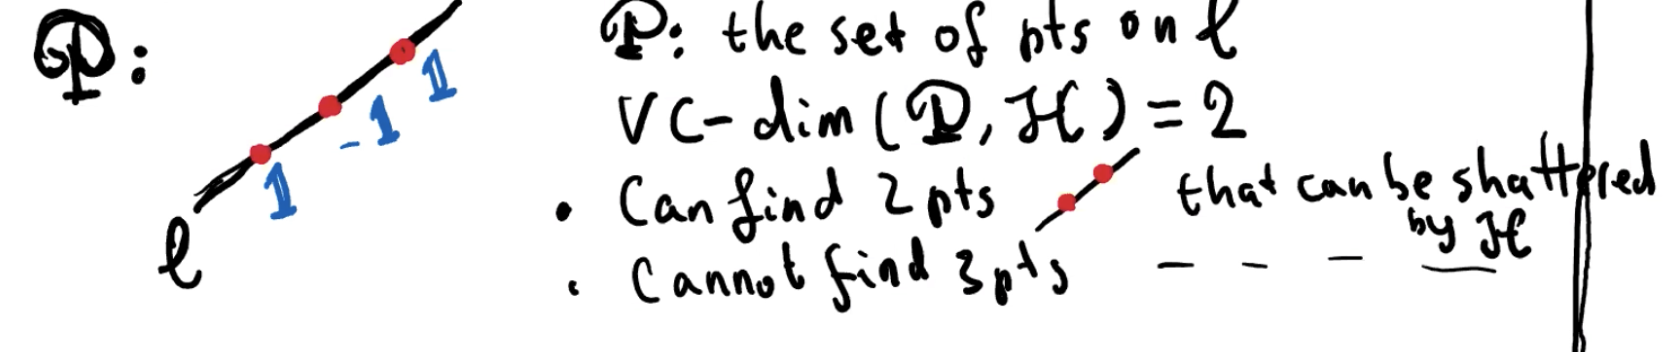 P:
1
-1
1
ℓ
P: the set of pts on ℓ
VC-dim (P, H) = 2
• Can find 2 pts that can be shattered by H
• Cannot find 3 pts — — — —